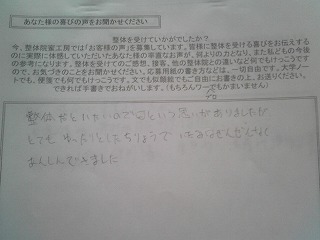 あなた様の喜びの声をお聞かせください
整体を受けていかがでしたか?
今、整体院蜜工房では「お客様の声」を募集しています。皆様に整体を受ける喜びをお伝えする
のに実際に体感していただいたあなた様の率直なお声が、何よりの力となり、また私どもの今後
の参考になります。整体を受けてのご感想、接客、他の整体院との違いなど何でもけっこうです
ので、お気づきのことをお聞かせください。応募用紙の書き方などは、一切自由です。大学ノー
トでも、便箋でも何でもけっこうです。文でも似顔絵でもご自由にお書きの上、お送りください。
できれば手書きでおねがいします。(もちろんワープロでもかまいません)
整体がといたいので
という思いがありましたが
とても ゆったりとしたちりょうで いたみはぜんぜんなく
あんしんできました